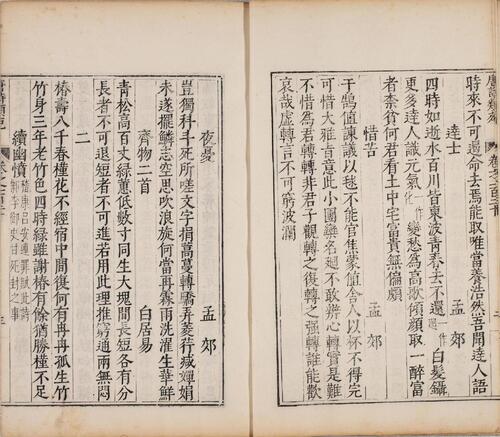 時來不可遏命去焉能取唯當養浩然吾聞達人語
達士 孟郊
四時如逝水百川皆東波青春去不還一作白髮鑷
更多達人識元氣一作化變愁為高歌傾觴取一醉富
者柰貧何君看土中宅富貴無偏頗
惜苦 孟郊
于鵠值諫議以毬不能官焦蒙值舍人以杯不得完
可惜大雅旨意此小團欒名廻不敢辨心轉實是難
不惜為君轉轉非君子觀轉之復轉之强轉誰能歡
哀哉虛轉言不可窮波瀾
夜憂 孟郊
豈獨科斗死所嗟文字捐蒿蔓轉驕弄菱荇減嬋娟
未遂擺鱗志空思吹浪旋何當再霖雨洗濯生華鮮
齊物二首 白居易
青松高百丈綠蕙低數寸同生大塊間長短各有分
長者不可退短者不可進若用此理推窮通兩無悶
二
椿壽八千春槿花不經宿中間復何有冉冉孤生竹
竹身三年老竹色四時綠雖謝椿有餘猶勝槿不足
續幽憤 嵇康呂安連罪賦此詩
李御史甘死封之事